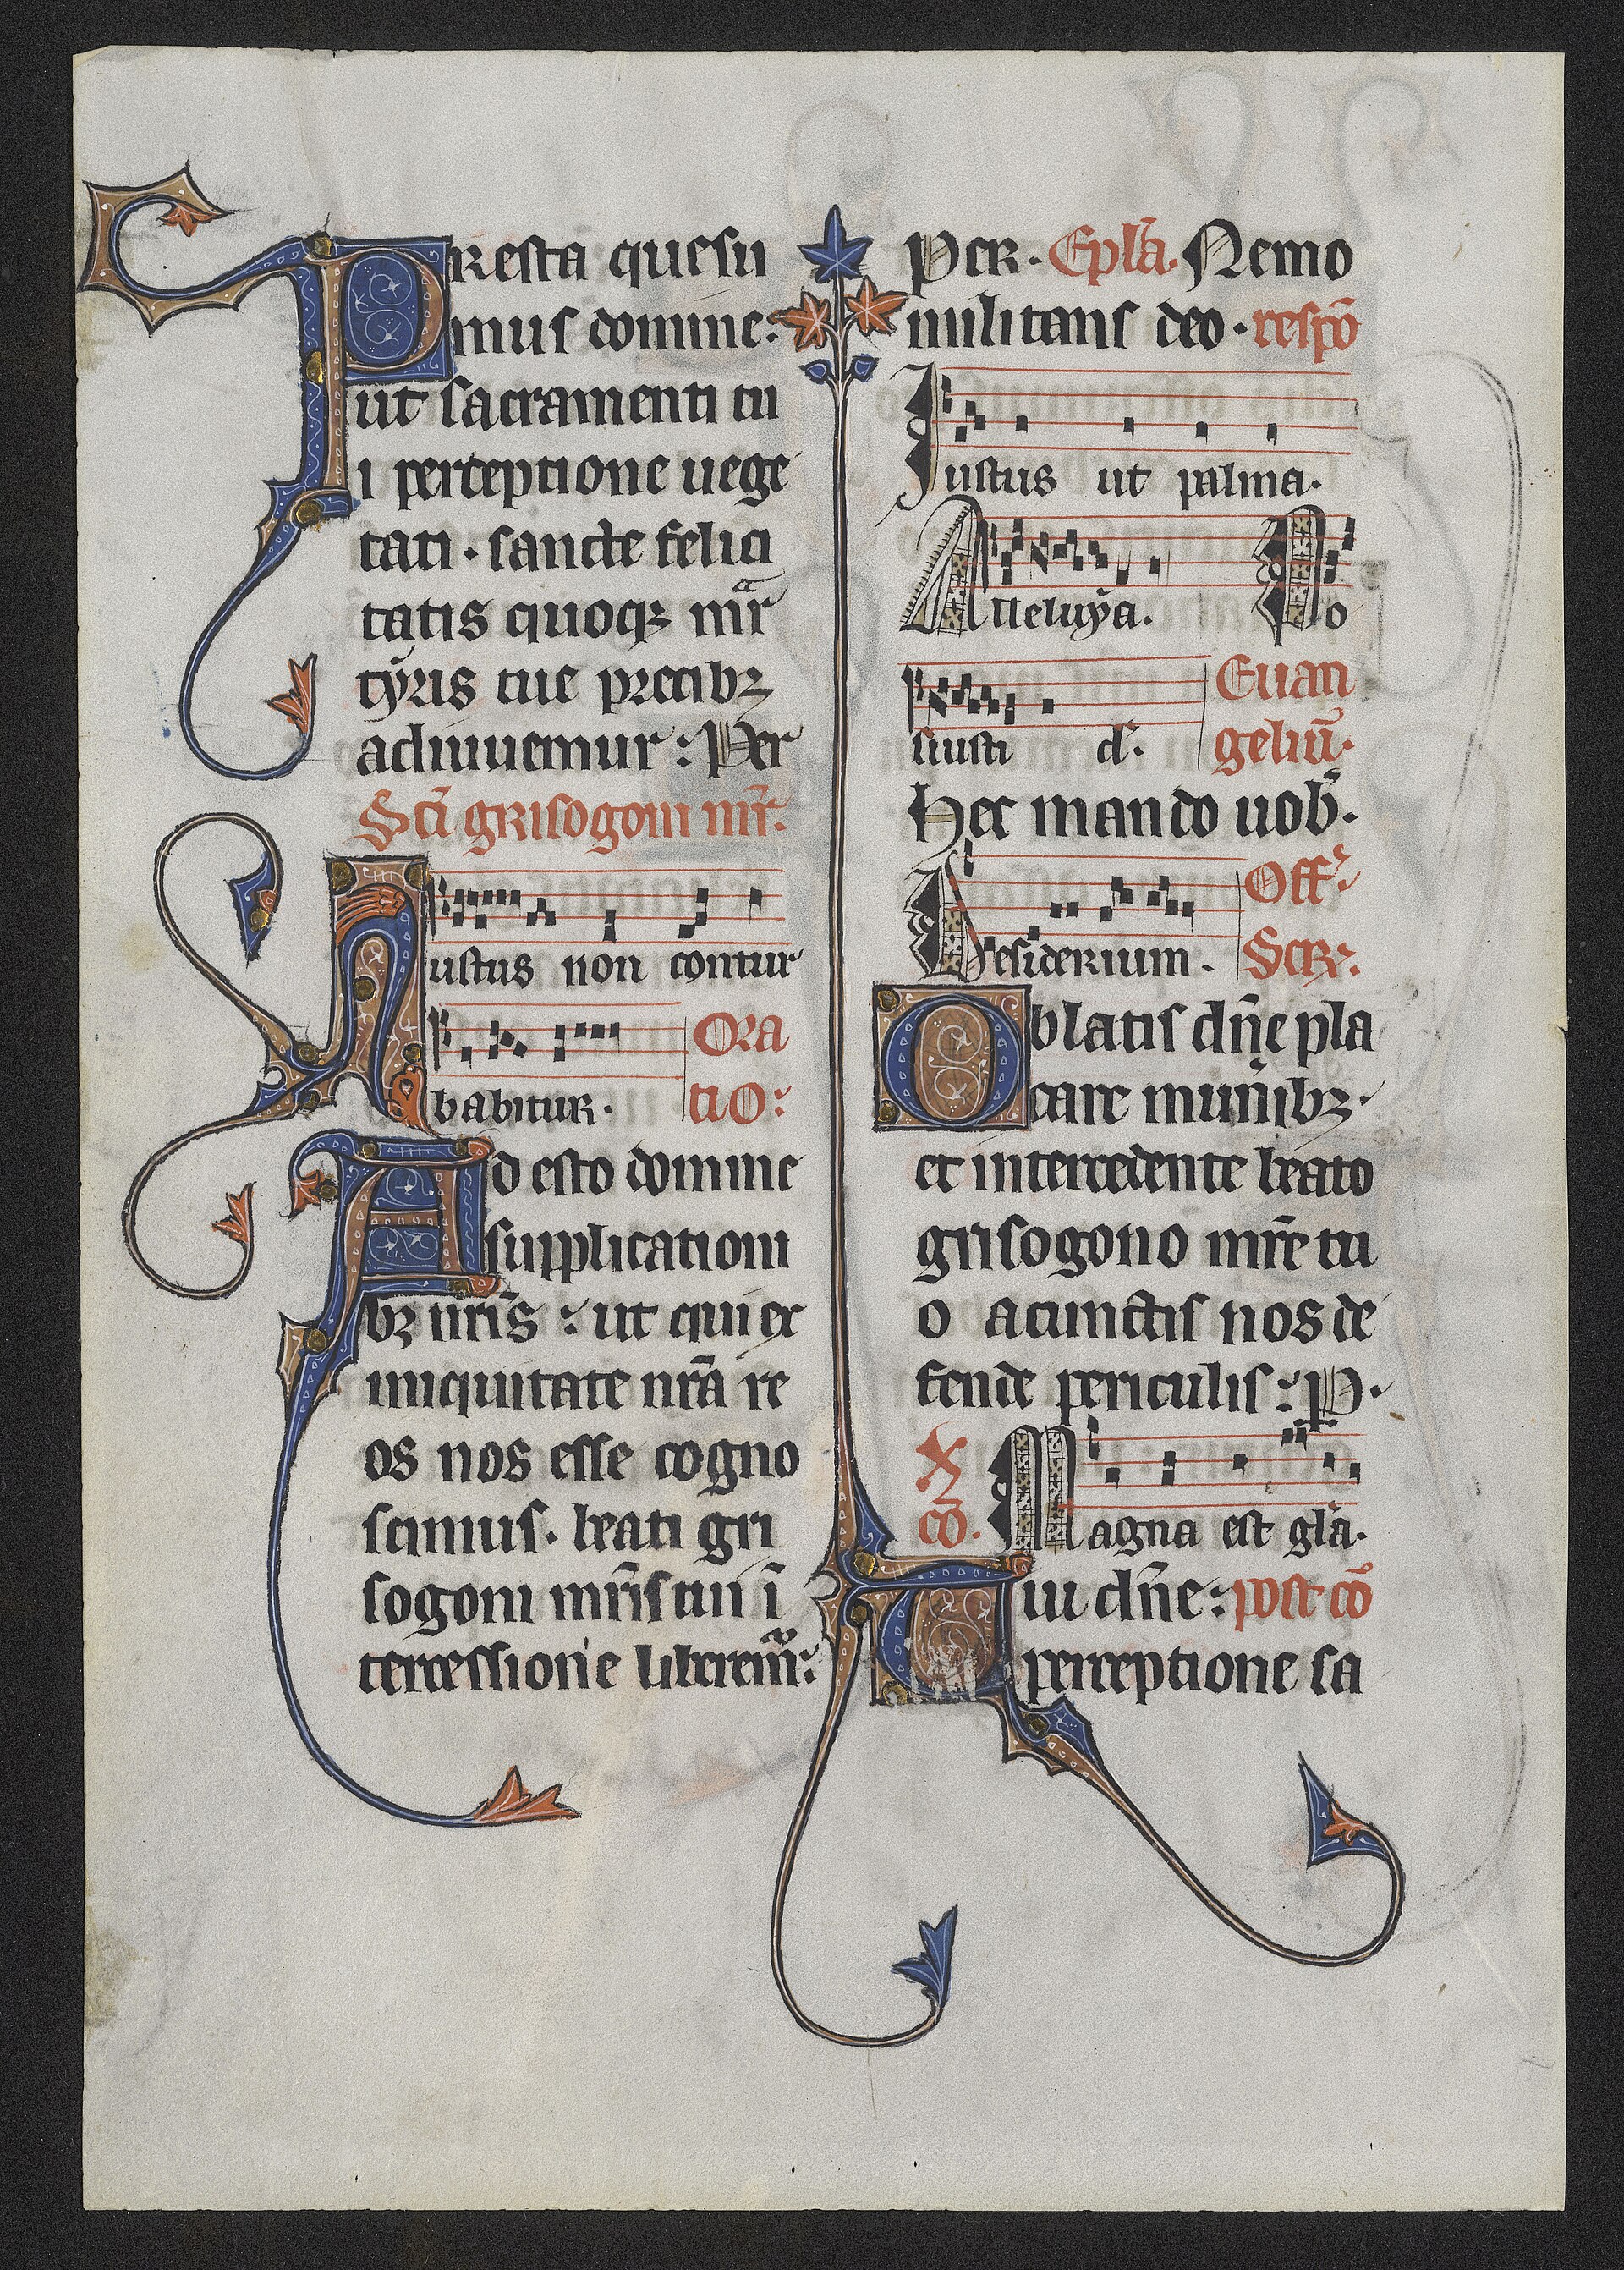 Presta quesu
mus domine:
ut sacramenti tu
i perceptione uege
tati · sancte felici
tatis quoqꝫ mr̄
tẏris tue precibꝫ
adiuuemur : Per
Sc̄i grisogoni mr̄.
Iustus non contur
babitur. Ora
tio:
Ad esto domine
supplicationi
bꝫ nr̄is : ut qui ex
iniquitate nr̄a re
os nos esse cogno
scimus. beati gri
sogoni mr̄is tui ī
tercessione liberem̄:
Per. Ep̄la. Nemo
militans deo. respō
Iustus ut palma.
Alleluẏa. Po
suisti d. Euan
geliū.
Hec mando uob̄.
Desiderium. Off.
Scr̄.
Oblatis dn̄e pla
care munībꝫ.
et intercedente beato
grisogono mr̄e tu
o acunctis nos de
fende periculis : P.
X
cō. Magna est gl̄a.
Tui dn̄e: post cō
perceptione sa